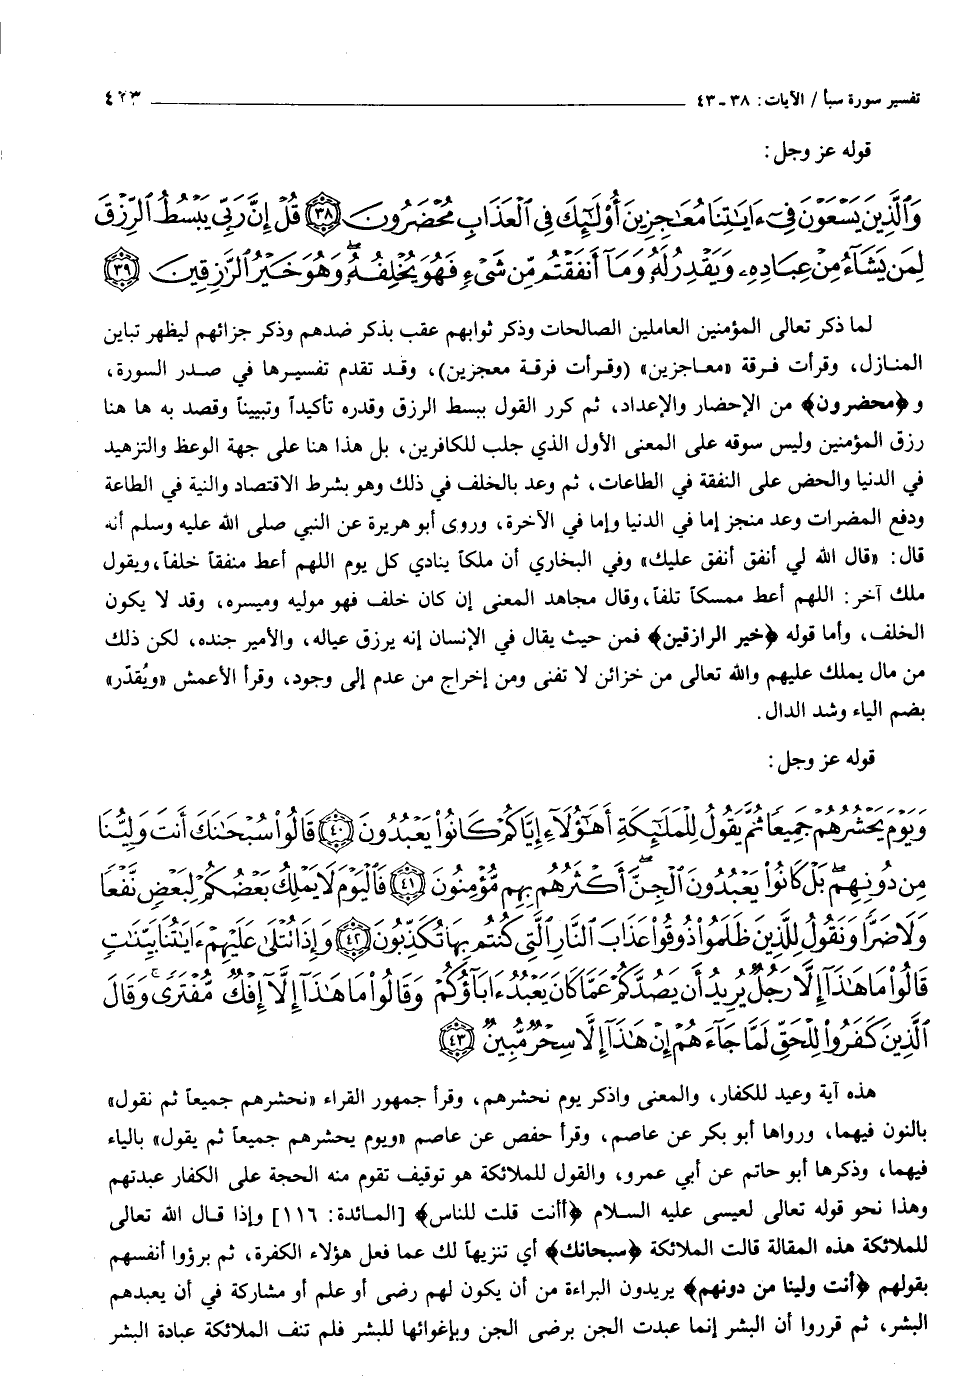 تفسير سورة سبأ / الآيات: ٣٨ - ٤٣ ٤٢٣
قوله عز وجل:
وَٱلَّذِينَ يَسْعَوْنَ فِىٓ ءَايَٰتِنَا مُعَٰجِزِينَ أُو۟لَٰٓئِكَ فِى ٱلْعَذَابِ مُحْضَرُونَ ٣٨ قُلْ إِنَّ رَبِّى يَبْسُطُ ٱلرِّزْقَ
لِمَن يَشَآءُ مِنْ عِبَادِهِۦ وَيَقْدِرُ لَهُۥ وَمَآ أَنفَقْتُم مِّن شَىْءٍ فَهُوَ يُخْلِفُهُۥ ۖ وَهُوَ خَيْرُ ٱلرَّٰزِقِينَ ٣٩
لما ذكر تعالى المؤمنين العاملين الصالحات وذكر ثوابهم عقب بذكر ضدهم وذكر جزائهم ليظهر تباين
المنازل، وقرأت فرقة «معاجزين» (وقرأت فرقة معجزين)، وقد تقدم تفسيرها في صدر السورة،
و﴿محضرون﴾ من الإحضار والإعداد، ثم كرر القول ببسط الرزق وقدره تأكيداً وتبييناً وقصد به ها هنا
رزق المؤمنين وليس سوقه على المعنى الأول الذي جلب للكافرين، بل هذا هنا على جهة الوعظ والتزهيد
في الدنيا والحض على النفقة في الطاعات، ثم وعد بالخلف في ذلك وهو بشرط الاقتصاد والنية في الطاعة
ودفع المضرات وعد منجز إما في الدنيا وإما في الآخرة، وروى أبو هريرة عن النبي صلى الله عليه وسلم أنه
قال: «قال الله لي أنفق أنفق عليك» وفي البخاري أن ملكاً ينادي كل يوم اللهم أعط منفقاً خلفاً، ويقول
ملك آخر: اللهم أعط ممسكاً تلفاً، وقال مجاهد المعنى إن كان خلف فهو موليه وميسره، وقد لا يكون
الخلف، وأما قوله ﴿خير الرازقين﴾ فمن حيث يقال في الإنسان إنه يرزق عياله، والأمير جنده، لكن ذلك
من مال يملك عليهم والله تعالى من خزائن لا تفنى ومن إخراج من عدم إلى وجود، وقرأ الأعمش «ويُقدّر»
بضم الياء وشد الدال.
قوله عز وجل:
وَيَوْمَ يَحْشُرُهُمْ جَمِيعًا ثُمَّ يَقُولُ لِلْمَلَٰٓئِكَةِ أَهَٰٓؤُلَآءِ إِيَّاكُمْ كَانُوا۟ يَعْبُدُونَ ٤٠ قَالُوا۟ سُبْحَٰنَكَ أَنتَ وَلِيُّنَا
مِن دُونِهِم ۖ بَلْ كَانُوا۟ يَعْبُدُونَ ٱلْجِنَّ ۖ أَكْثَرُهُم بِهِم مُّؤْمِنُونَ ٤١ فَٱلْيَوْمَ لَا يَمْلِكُ بَعْضُكُمْ لِبَعْضٍ نَّفْعًا
وَلَا ضَرًّا وَنَقُولُ لِلَّذِينَ ظَلَمُوا۟ ذُوقُوا۟ عَذَابَ ٱلنَّارِ ٱلَّتِى كُنتُم بِهَا تُكَذِّبُونَ ٤٢ وَإِذَا تُتْلَىٰ عَلَيْهِمْ ءَايَٰتُنَا بَيِّنَٰتٍ
قَالُوا۟ مَا هَٰذَآ إِلَّا رَجُلٌ يُرِيدُ أَن يَصُدَّكُمْ عَمَّا كَانَ يَعْبُدُ ءَابَآؤُكُمْ وَقَالُوا۟ مَا هَٰذَآ إِلَّآ إِفْكٌ مُّفْتَرًى ۚ وَقَالَ
ٱلَّذِينَ كَفَرُوا۟ لِلْحَقِّ لَمَّا جَآءَهُمْ إِنْ هَٰذَآ إِلَّا سِحْرٌ مُّبِينٌ ٤٣
هذه آية وعيد للكفار، والمعنى واذكر يوم نحشرهم، وقرأ جمهور القراء «نحشرهم جميعاً ثم نقول»
بالنون فيهما، ورواها أبو بكر عن عاصم، وقرأ حفص عن عاصم «ويوم يحشرهم جميعاً ثم يقول» بالياء
فيهما، وذكرها أبو حاتم عن أبي عمرو، والقول للملائكة هو توقيف تقوم منه الحجة على الكفار عبدتهم
وهذا نحو قوله تعالى لعيسى عليه السلام ﴿أأنت قلت للناس﴾ [المائدة: ١١٦] وإذا قال الله تعالى
للملائكة هذه المقالة قالت الملائكة ﴿سبحانك﴾ أي تنزيهاً لك عما فعل هؤلاء الكفرة، ثم برؤوا أنفسهم
بقولهم ﴿أنت ولينا من دونهم﴾ يريدون البراءة من أن يكون لهم رضى أو علم أو مشاركة في أن يعبدهم
البشر، ثم قرروا أن البشر إنما عبدت الجن برضى الجن وبإغوائها للبشر فلم تنف الملائكة عبادة البشر